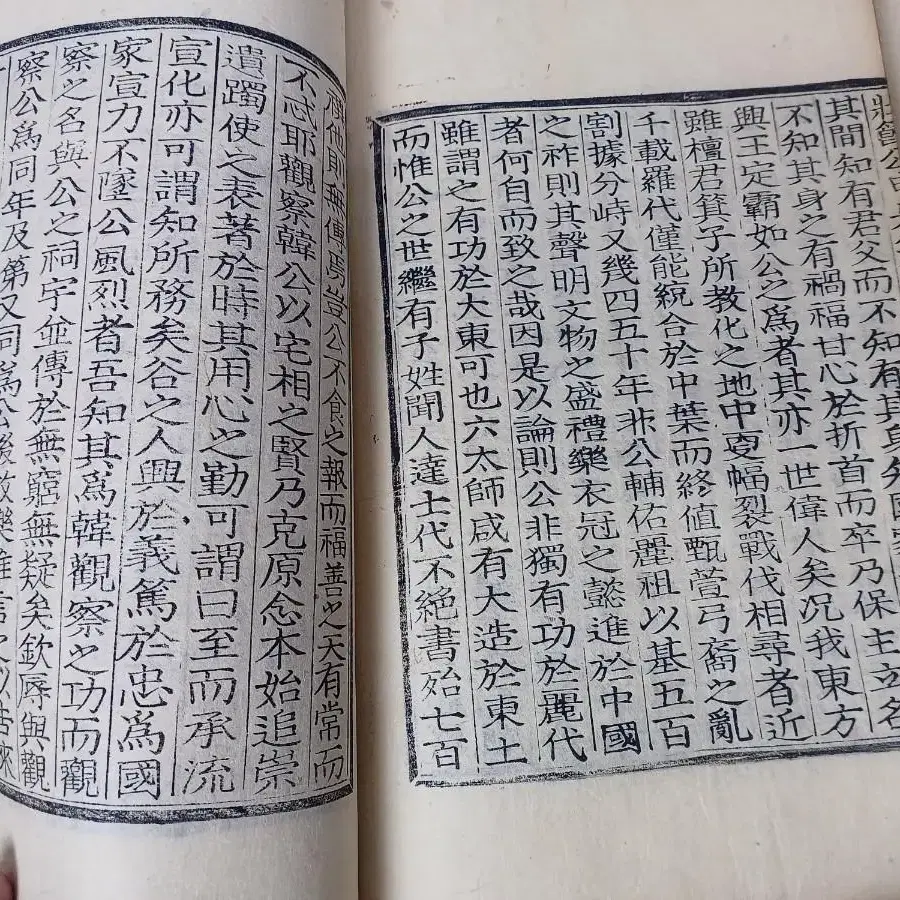 壯節公
其間知有君父而不知有其身
不知其身之有禍福甘心於折首而卒乃保主立名
興王定霸如公之爲者其亦一世偉人矣况我東方
雖檀君箕子所敎化之地中夏幅裂戰伐相尋者近
千載羅代僅能統合於中葉而終値甄萱弓裔之亂
割據分峙又幾四五十年非公輔佑麗祖以基五百
之祚則其聲明文物之盛禮樂衣冠之懿進於中國
者何自而致之哉因是以論則公非獨有功於麗代
雖謂之有功於大東可也六太師咸有大造於東土
而惟公之世繼有子姓聞人達士代不絶書始七百
仲則無傳焉豈公不食之報而福善之天有常而
不忒耶觀察韓公以宅相之賢乃克原念本始追崇
遺躅使之表著於時其用心之勤可謂曰至而承流
宣化亦可謂知所務矣谷之人興於義篤於忠爲國
家宣力不墜公風烈者吾知其爲韓觀察之功而觀
察之名與公之祠宇並傳於無窮無疑矣欽辱與觀
察公爲同年及第又同爲公後故樂推言之以告來